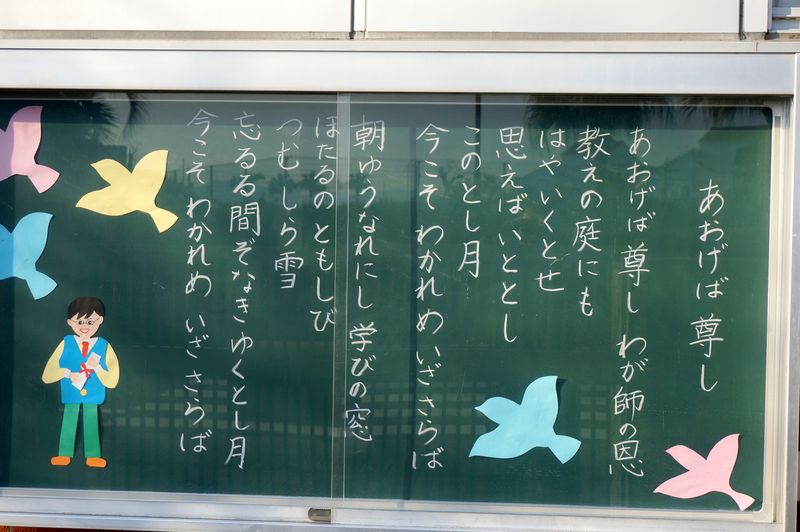 あおげば 尊し
あおげば 尊し わが 師の恩
教えの庭にも
はや いくとせ
思えば いととし
この とし月
今こそ わかれめ いざ さらば
朝ゆうなれにし 学びの窓
ほたるの ともしび
つむ しら雪
忘るる間ぞなき ゆく とし月
今こそ わかれめ いざ さらば